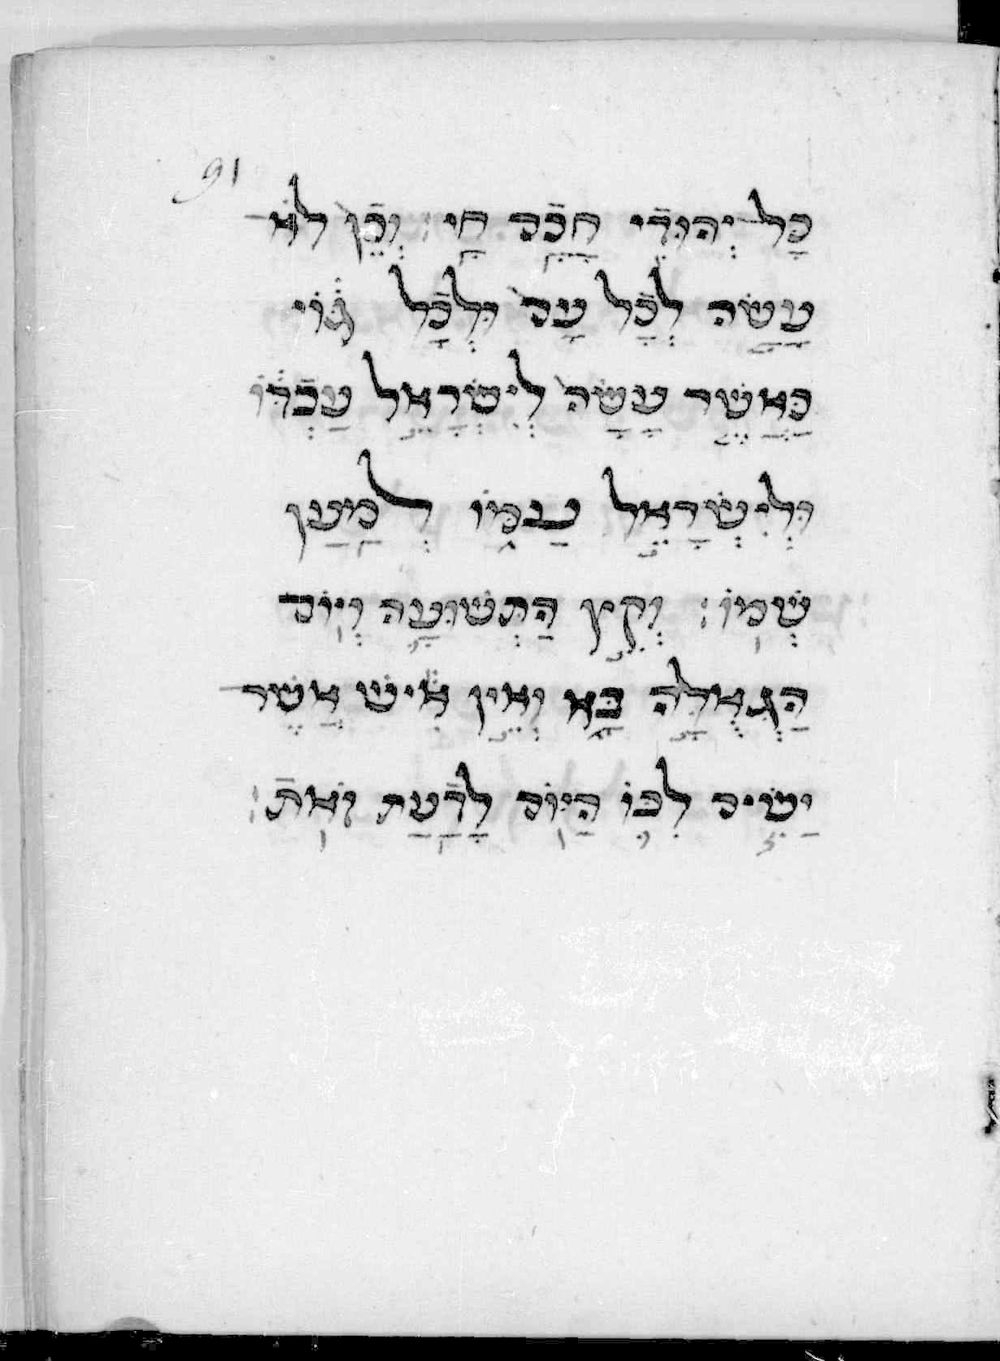 91
כָל יְהוּדִי חָכָם חַי׃ וְכֵן לֹא
עָשָׂה לְכָל עָם וּלְכָל גוֹי
כַּאֲשֶׁר עָשָׂה לְיִשְׂרָאֵל עַבְדּוֹ
וּלְיִשְׂרָאֵל עַמּוֹ לְמַעַן
שְׁמוֹ׃ וְקֵץ הַתְּשׁוּעָה וְיוֹם
הַגְּאֻלָּה בָּא וְאֵין אִישׁ אֲשֶׁר
יָשִׂים לִבּוֹ הַיּוֹם לָדַעַת זֹאת׃